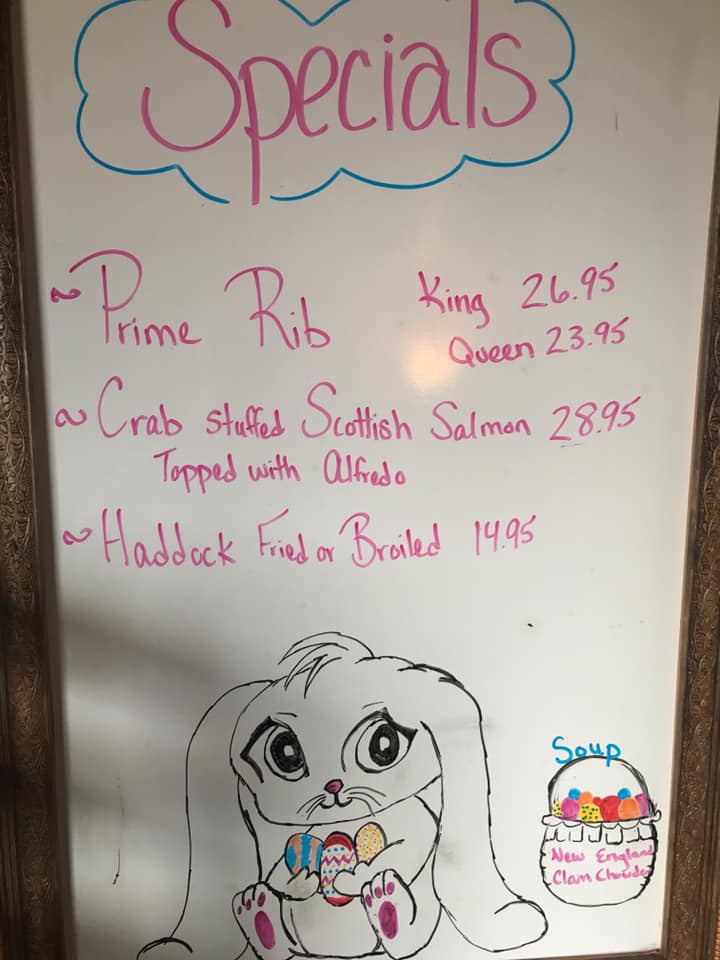 Specials
~ Prime Rib King 26.95
Queen 23.95
~ Crab Stuffed Scottish Salmon 28.95
Topped with Alfredo
~ Haddock Fried or Broiled 14.95
Soup
New England
Clam Chowder